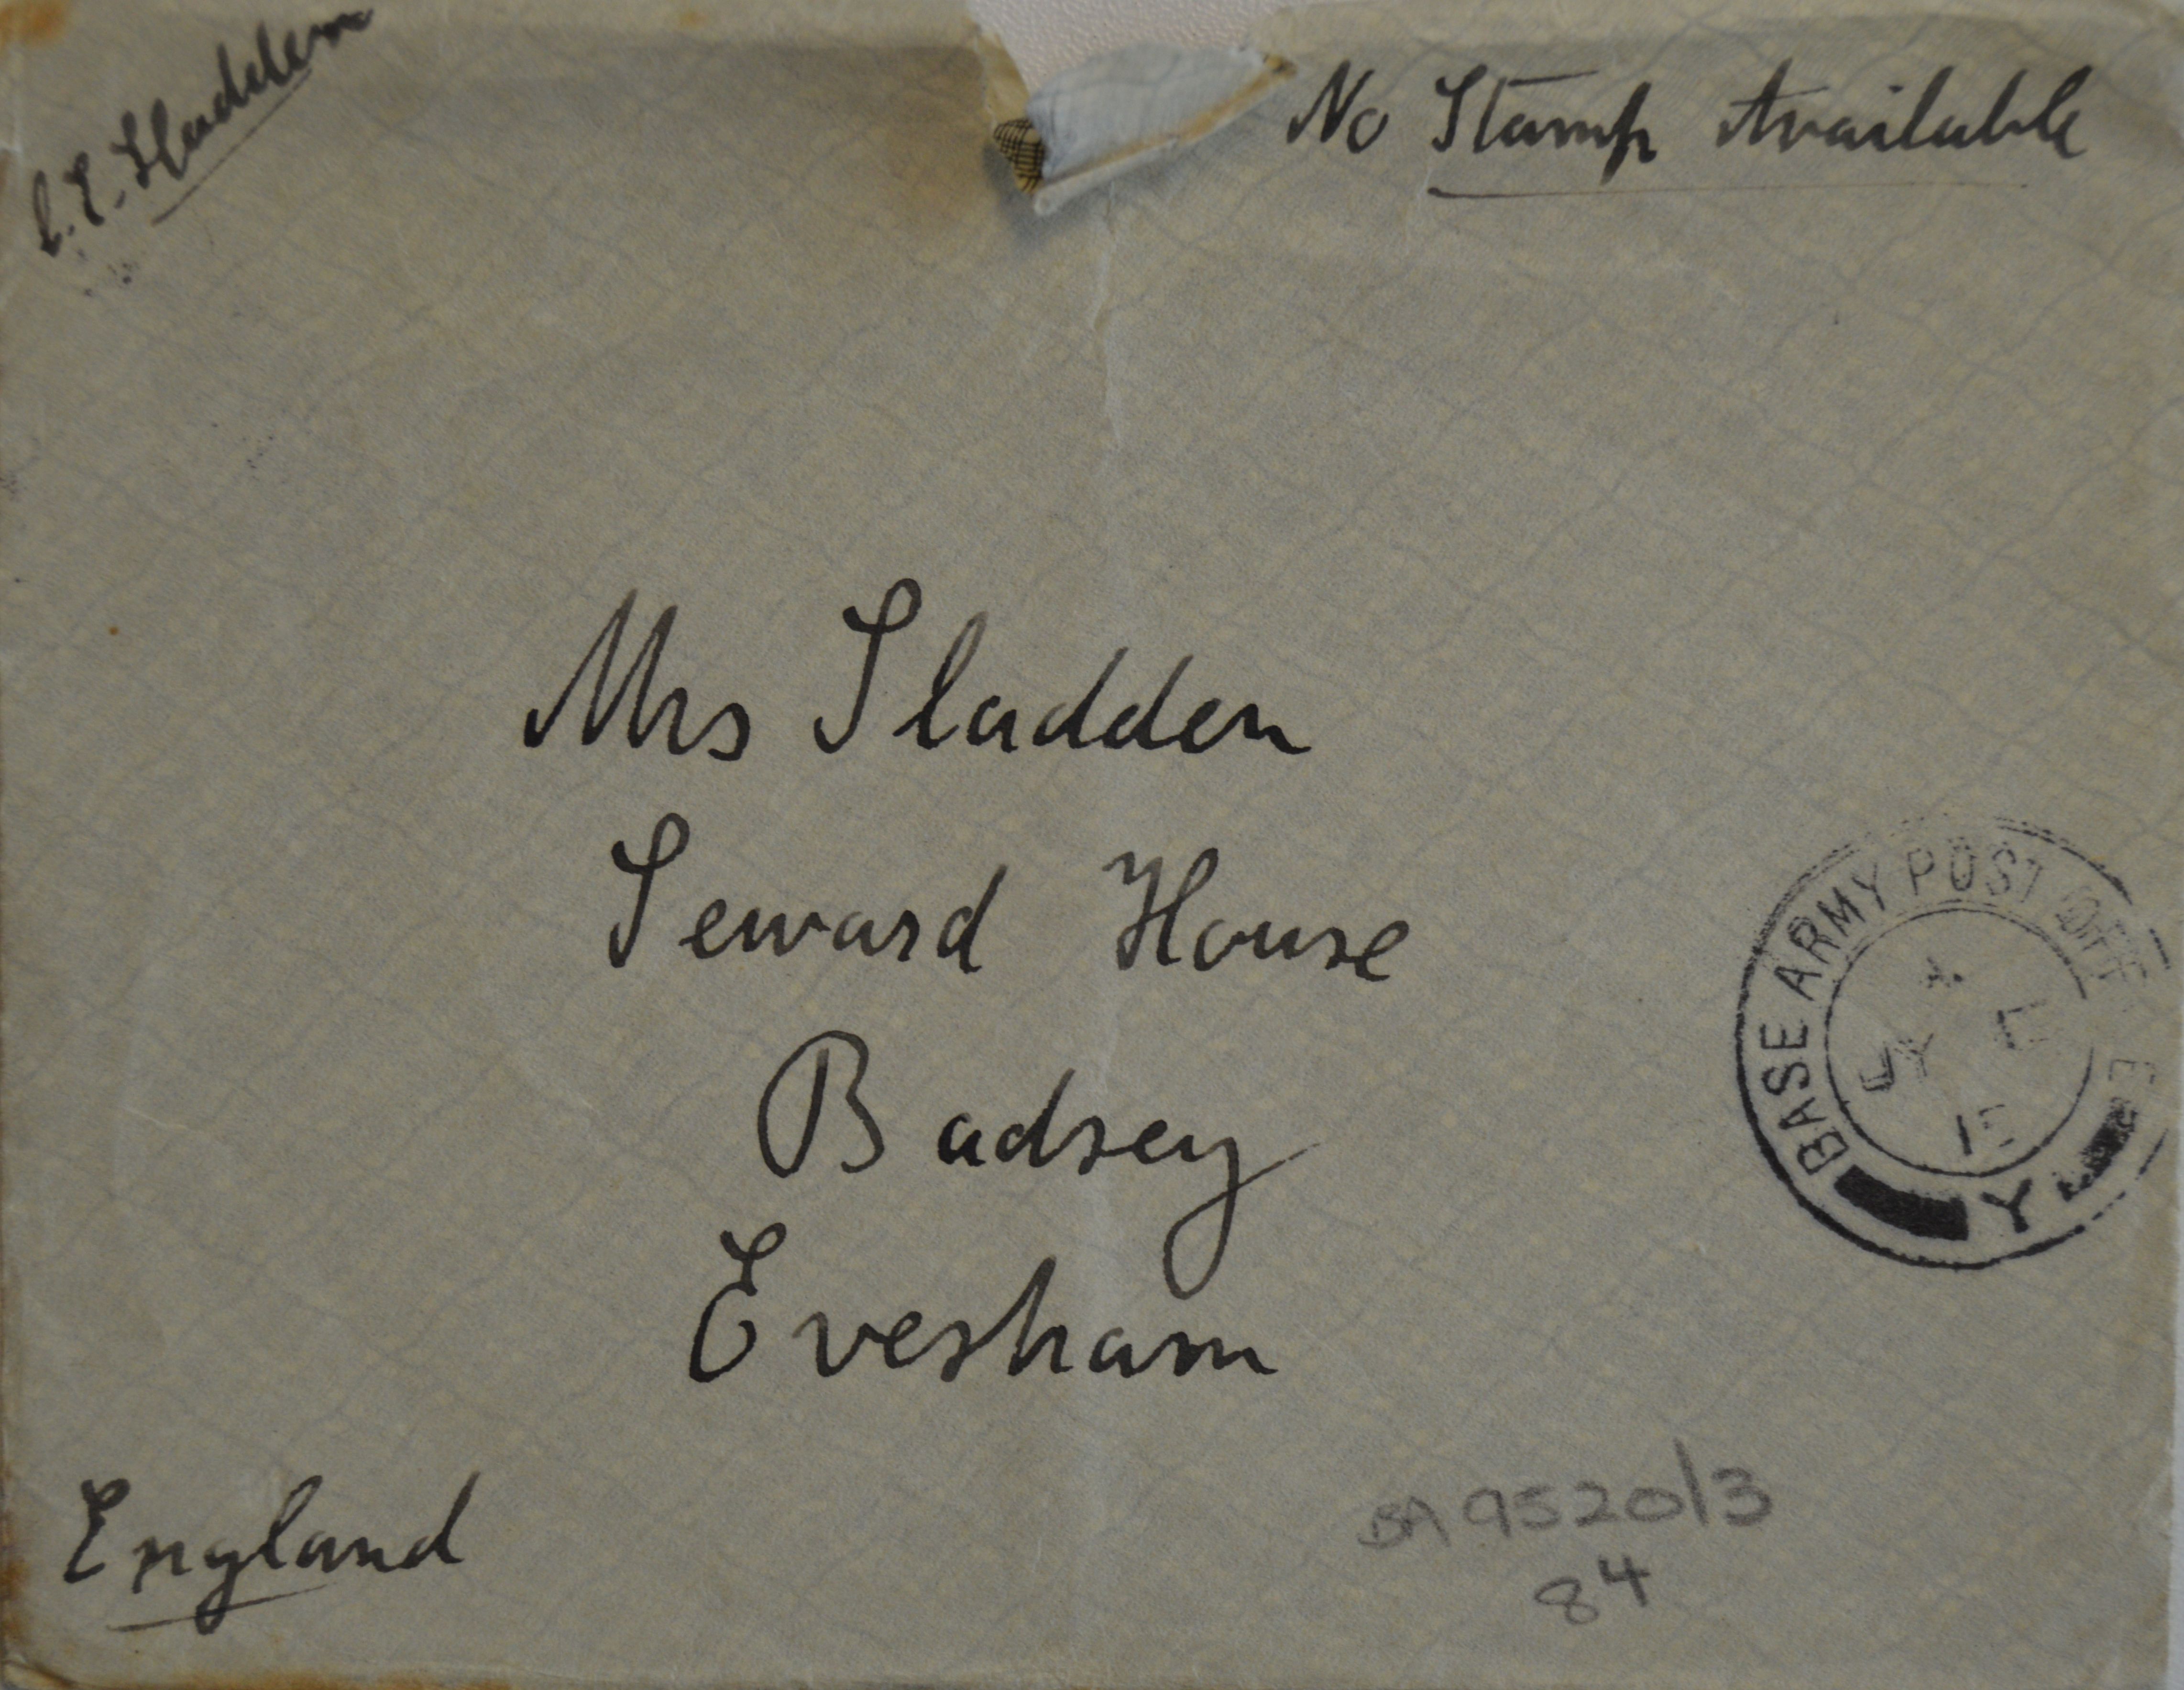 C. E. Sladden
No Stamp Available
Mrs Sladden
Seward House
Badsey
Evesham
England
BASE ARMY POST OFFICE
JY
15
Y
BA 9520/3
84